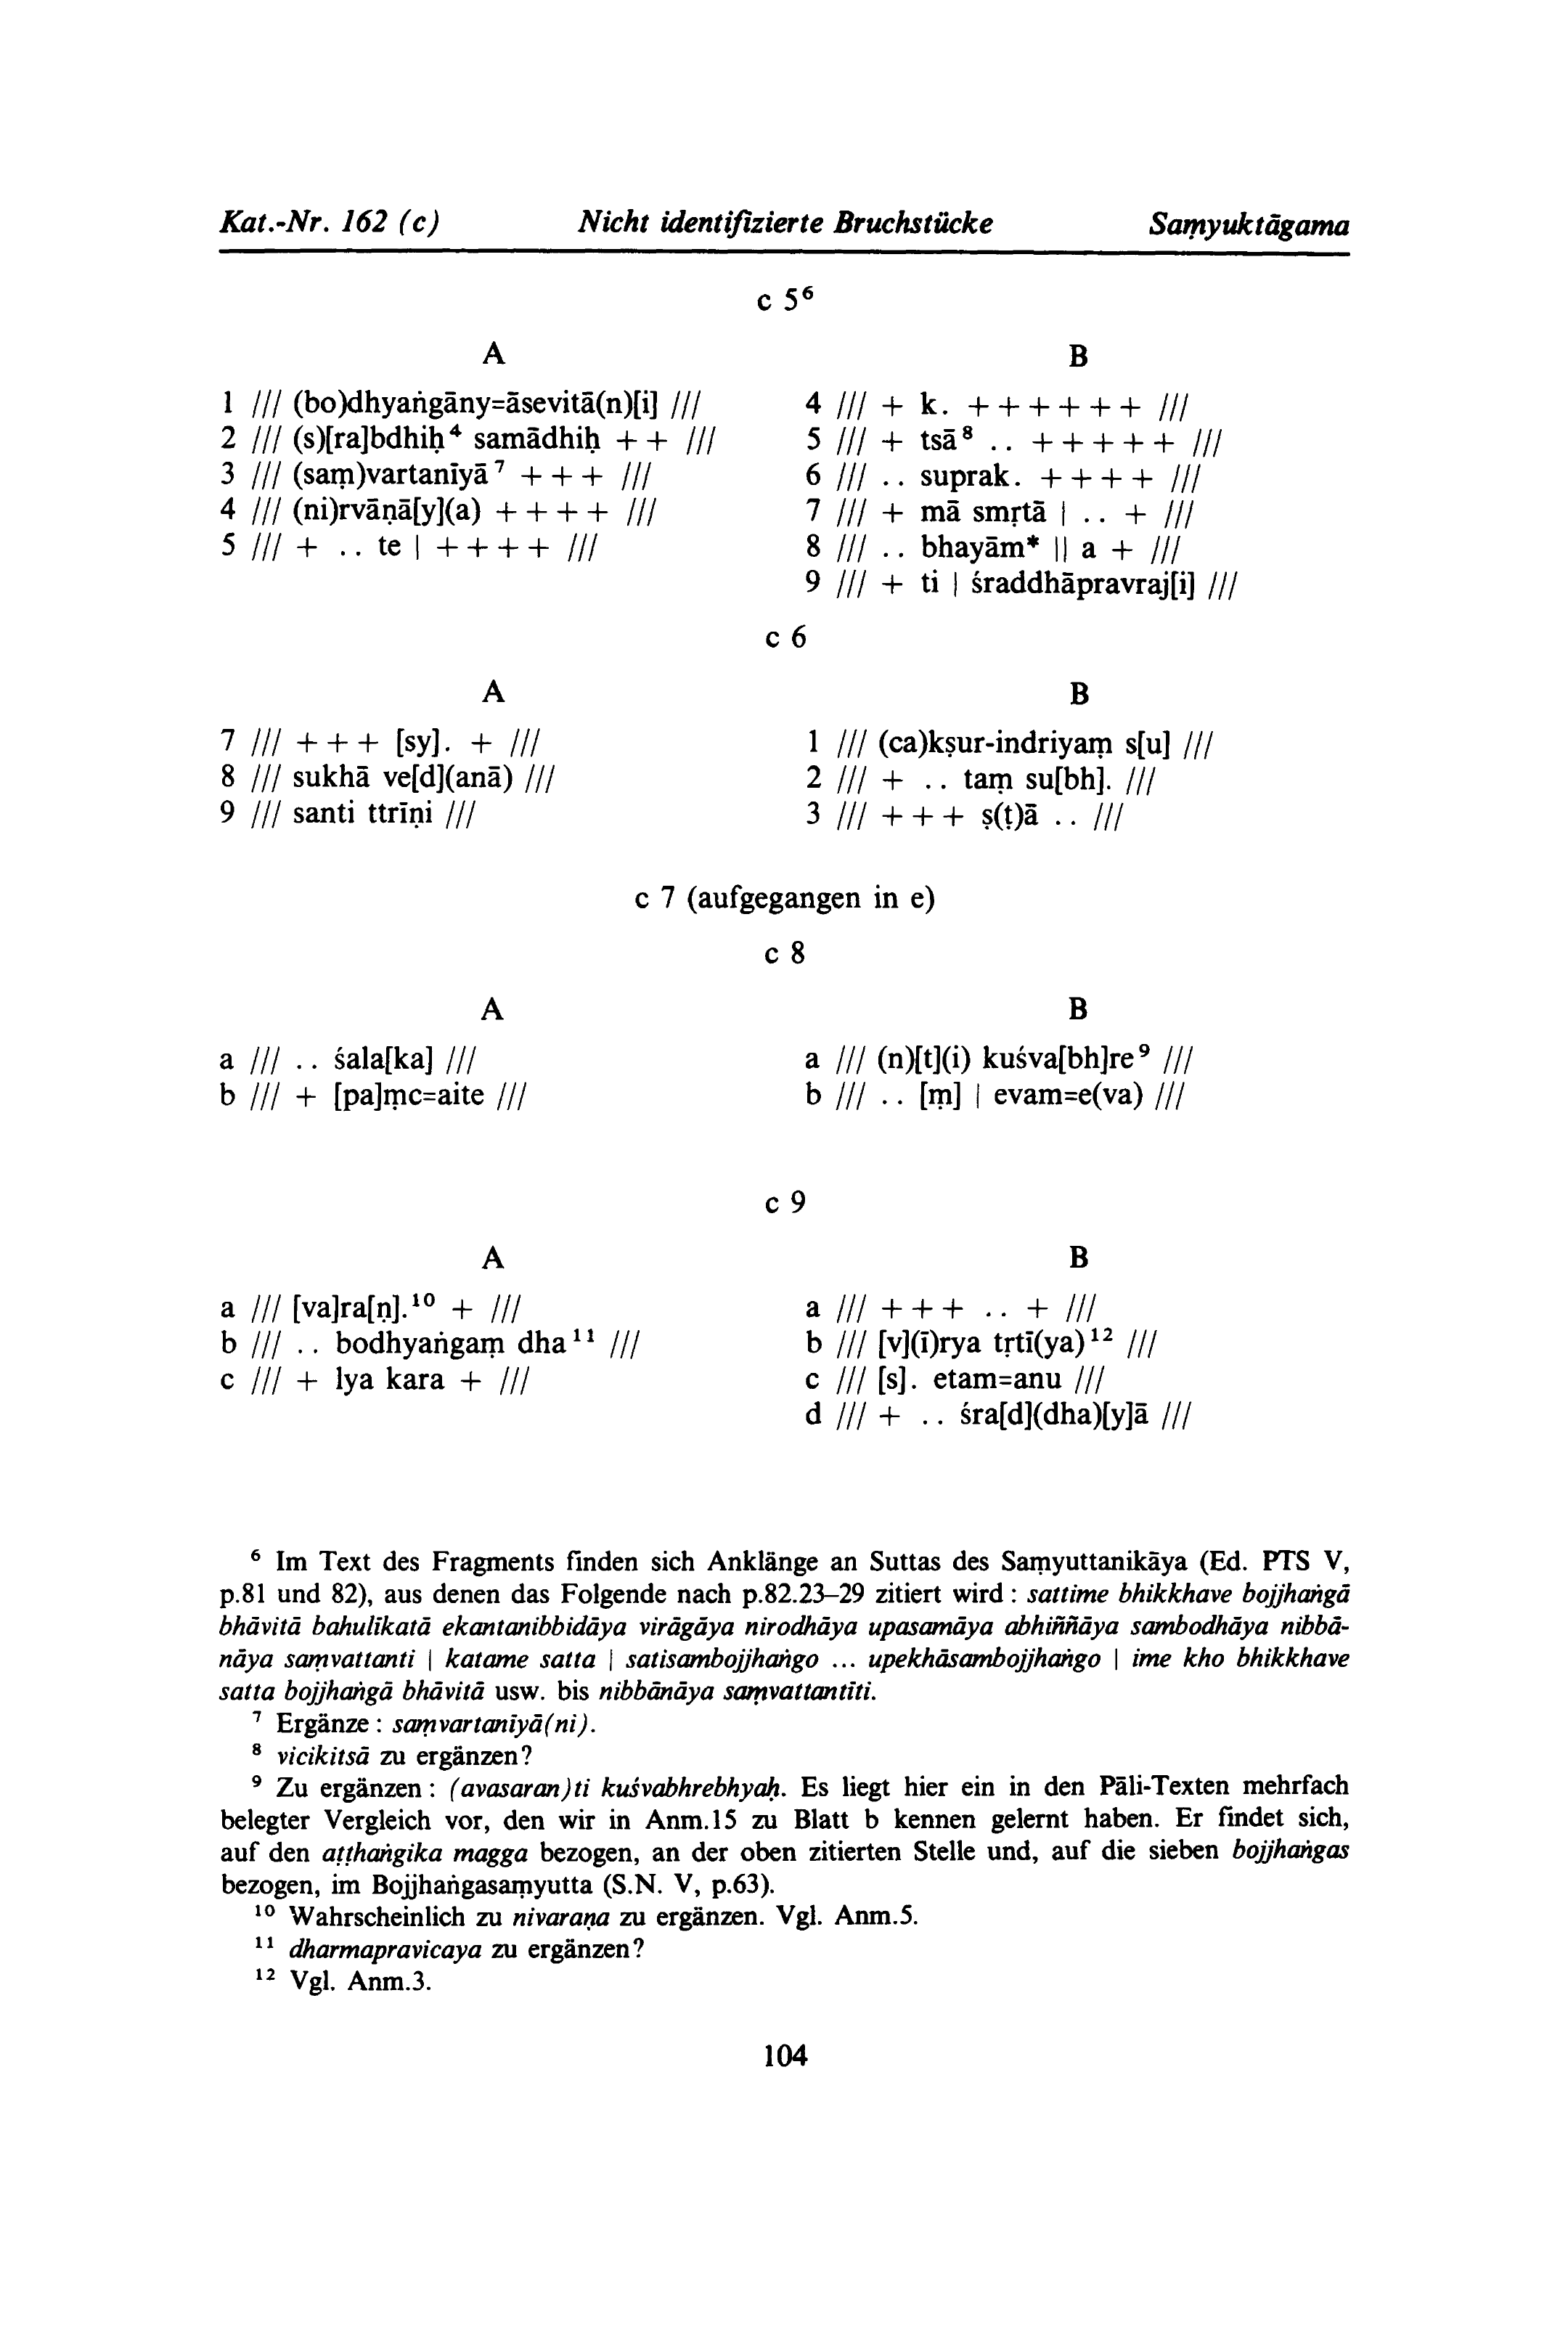 Kat.-Nr. 162 (c) Nicht identifizierte Bruchstücke Saṃyuktāgama
c 5⁶
A
1 /// (bo)dhyaṅgāny=āsevitā(n)[i] ///
2 /// (s)[ra]bdhiḥ⁴ samādhiḥ + + ///
3 /// (saṃ)vartanīyā⁷ + + + ///
4 /// (ni)rvāṇā[y](a) + + + + ///
5 /// + .. te | + + + + ///
B
4 /// + k. + + + + + + ///
5 /// + tsā⁸ .. + + + + + ///
6 /// .. suprak. + + + + ///
7 /// + mā smṛtā | .. + ///
8 /// .. bhayām* || a + ///
9 /// + ti | śraddhāpravraj[i] ///
c 6
A
7 /// + + + [sy]. + ///
8 /// sukhā ve[d](anā) ///
9 /// santi ttrīṇi ///
B
1 /// (ca)kṣur-indriyaṃ s[u] ///
2 /// + .. taṃ su[bh]. ///
3 /// + + + ṣ(ṭ)ā .. ///
c 7 (aufgegangen in e)
c 8
A
a /// .. śala[ka] ///
b /// + [pa]ṃc=aite ///
B
a /// (n)[t](i) kuśva[bh]re⁹ ///
b /// .. [ṃ] | evam=e(va) ///
c 9
A
a /// [va]ra[ṇ].¹⁰ + ///
b /// .. bodhyaṅgaṃ dha¹¹ ///
c /// + lya kara + ///
B
a /// + + + .. + ///
b /// [v](ī)rya tṛtī(ya)¹² ///
c /// [s]. etam=anu ///
d /// + .. śra[d](dha)[y]ā ///
⁶ Im Text des Fragments finden sich Anklänge an Suttas des Saṃyuttanikāya (Ed. PTS V,
p.81 und 82), aus denen das Folgende nach p.82.23–29 zitiert wird : sattime bhikkhave bojjhaṅgā
bhāvitā bahulīkatā ekantanibbidāya virāgāya nirodhāya upasamāya abhiññāya sambodhāya nibbā-
nāya saṃvattanti | katame satta | satisambojjhaṅgo ... upekhāsambojjhaṅgo | ime kho bhikkhave
satta bojjhaṅgā bhāvitā usw. bis nibbānāya saṃvattantīti.
⁷ Ergänze : saṃvartanīyā(ni).
⁸ vicikitsā zu ergänzen?
⁹ Zu ergänzen : (avasaran)ti kuśvabhrebhyaḥ. Es liegt hier ein in den Pāli-Texten mehrfach
belegter Vergleich vor, den wir in Anm.15 zu Blatt b kennen gelernt haben. Er findet sich,
auf den aṭṭhaṅgika magga bezogen, an der oben zitierten Stelle und, auf die sieben bojjhaṅgas
bezogen, im Bojjhaṅgasaṃyutta (S.N. V, p.63).
¹⁰ Wahrscheinlich zu nivaraṇa zu ergänzen. Vgl. Anm.5.
¹¹ dharmapravicaya zu ergänzen?
¹² Vgl. Anm.3.
104